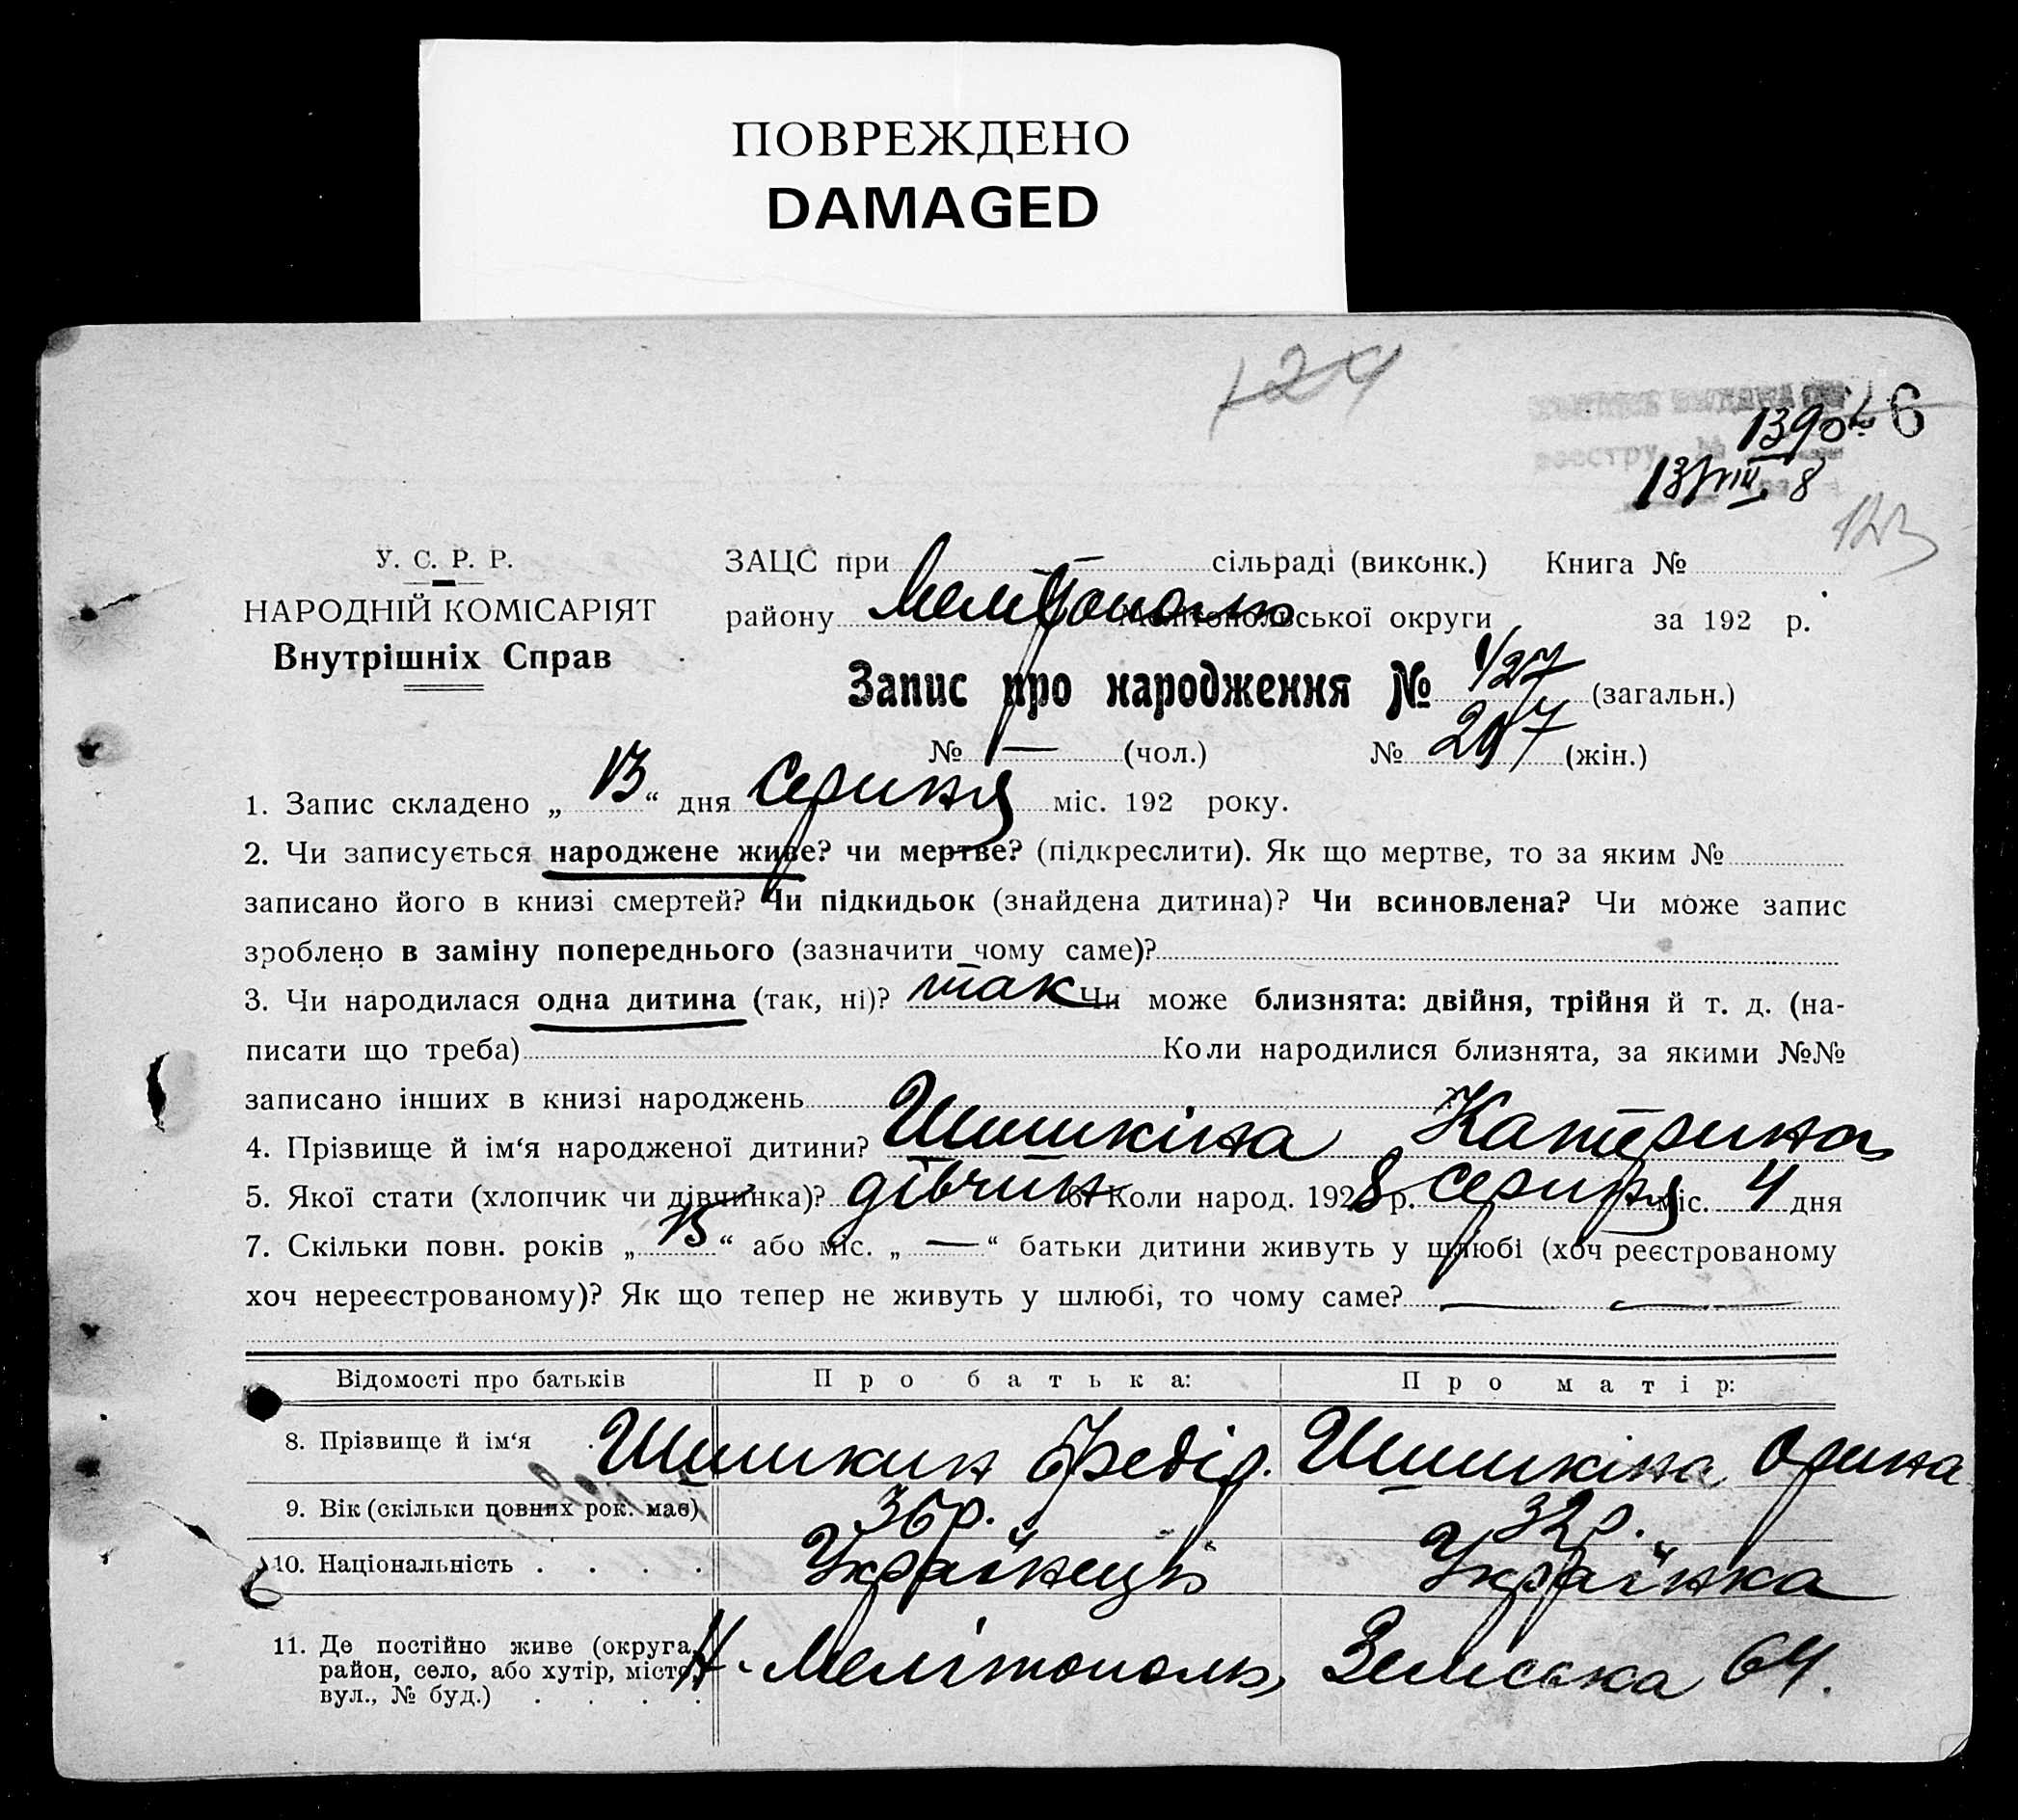 ПОВРЕЖДЕНО
DAMAGED
124
6
1390
реєстру №
13/VIII 8
123
У. С. Р. Р.
НАРОДНІЙ КОМІСАРІЯТ
Внутрішніх Справ
ЗАЦС при сільраді (виконк.) Книга №
району Мелітополь Мелітопольської округи за 192 р.
Запис про народження № 427 (загальн.)
№ — (чол.) № 207 (жін.)
1. Запис складено „13“ дня Серпня міс. 192 року.
2. Чи записується народжене живе? чи мертве? (підкреслити). Як що мертве, то за яким №
записано його в книзі смертей? Чи підкидьок (знайдена дитина)? Чи всиновлена? Чи може запис
зроблено в заміну попереднього (зазначити чому саме)?
3. Чи народилася одна дитина (так, ні)? так Чи може близнята: двійня, трійня й т. д. (на-
писати що треба) Коли народилися близнята, за якими №№
записано інших в книзі народжень
4. Прізвище й ім‘я народженої дитини? Шишкіна Катерина
5. Якої стати (хлопчик чи дівчинка)? дівчин 6. Коли народ. 1928 р. Серпня міс. 4 дня
7. Скільки повн. років „13“ або міс. „—“ батьки дитини живуть у шлюбі (хоч реєстрованому
хоч нереєстрованому)? Як що тепер не живуть у шлюбі, то чому саме? — —
Відомості про батьків Про батька: Про матір:
8. Прізвище й ім‘я Шишкин Федір. Шишкіна Орина
9. Вік (скільки повних рок. має) 36 р. 32 р.
10. Національність . . . . Українець Українка
11. Де постійно живе (округа, район, село, або хутір, місто, вул., № буд.) . . . . Н-Мелітополь, Земська 64.